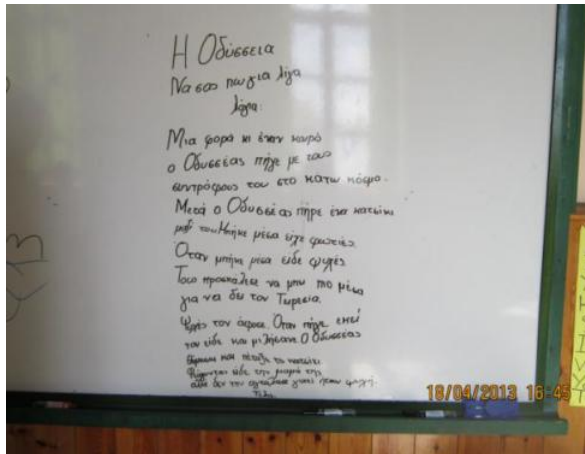 Η Οδύσσεια
Να σας πω για λίγα
λόγια:
Μια φορά κι έναν καιρό
ο Οδυσσέας πήγε με τους
συντρόφους του στο κατω κόσμο.
Μετά ο Οδυσσέας πήρε ένα κατσίκι
μαζί του. Μπήκε μέσα είχε φωτιές.
Όταν μπήκε μέσα είδε ψυχές
να μην πιο μέσα
για να δει τον Τυρεσία.
τον άφησε. Όταν πήγε εκεί
τον είδε και μιλήσανε. Ο Οδυσσέας
και πέταξε το κατσίκι
είδε την μαμά της
αλλά δεν την γιατί ήταν ψυχή.
Τέλος
18/04/2013 16:45